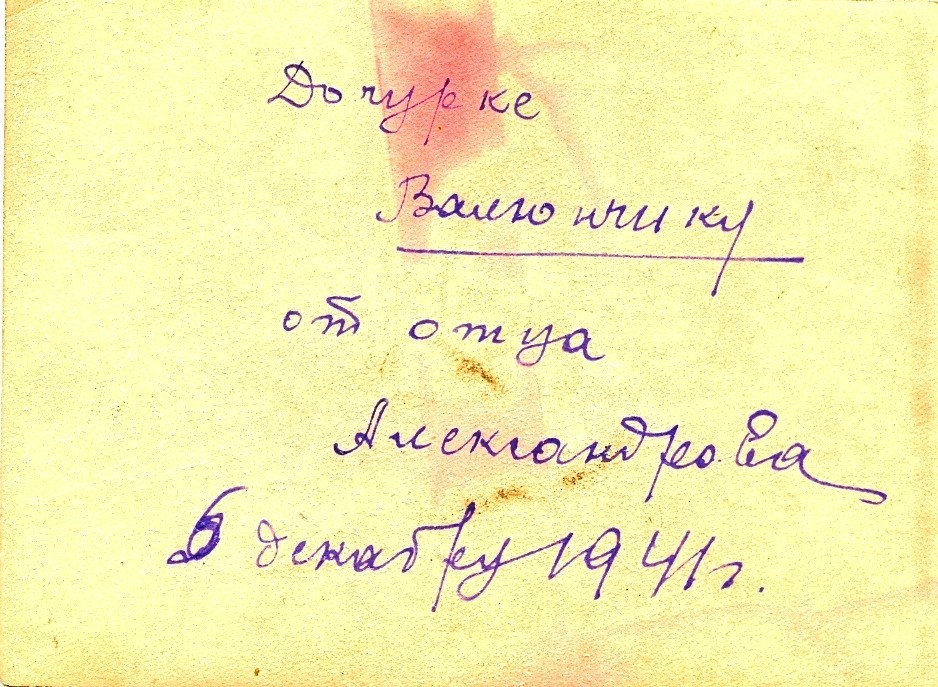 Дочурке
Валюнчику
от отца
Александрова
декабря 1941г.